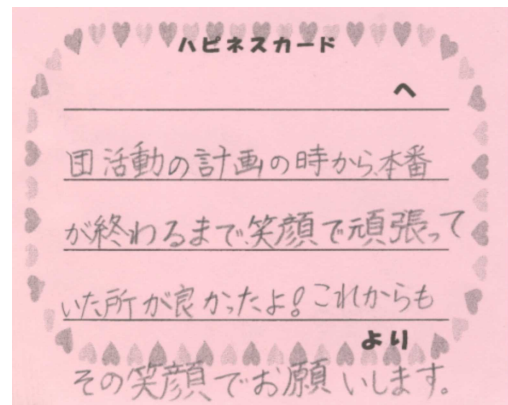 ハピネスカード
へ
団活動の計画の時から本番
が終わるまで笑顔で頑張って
いた所が良かったよ!これからも
より
その笑顔でお願いします。